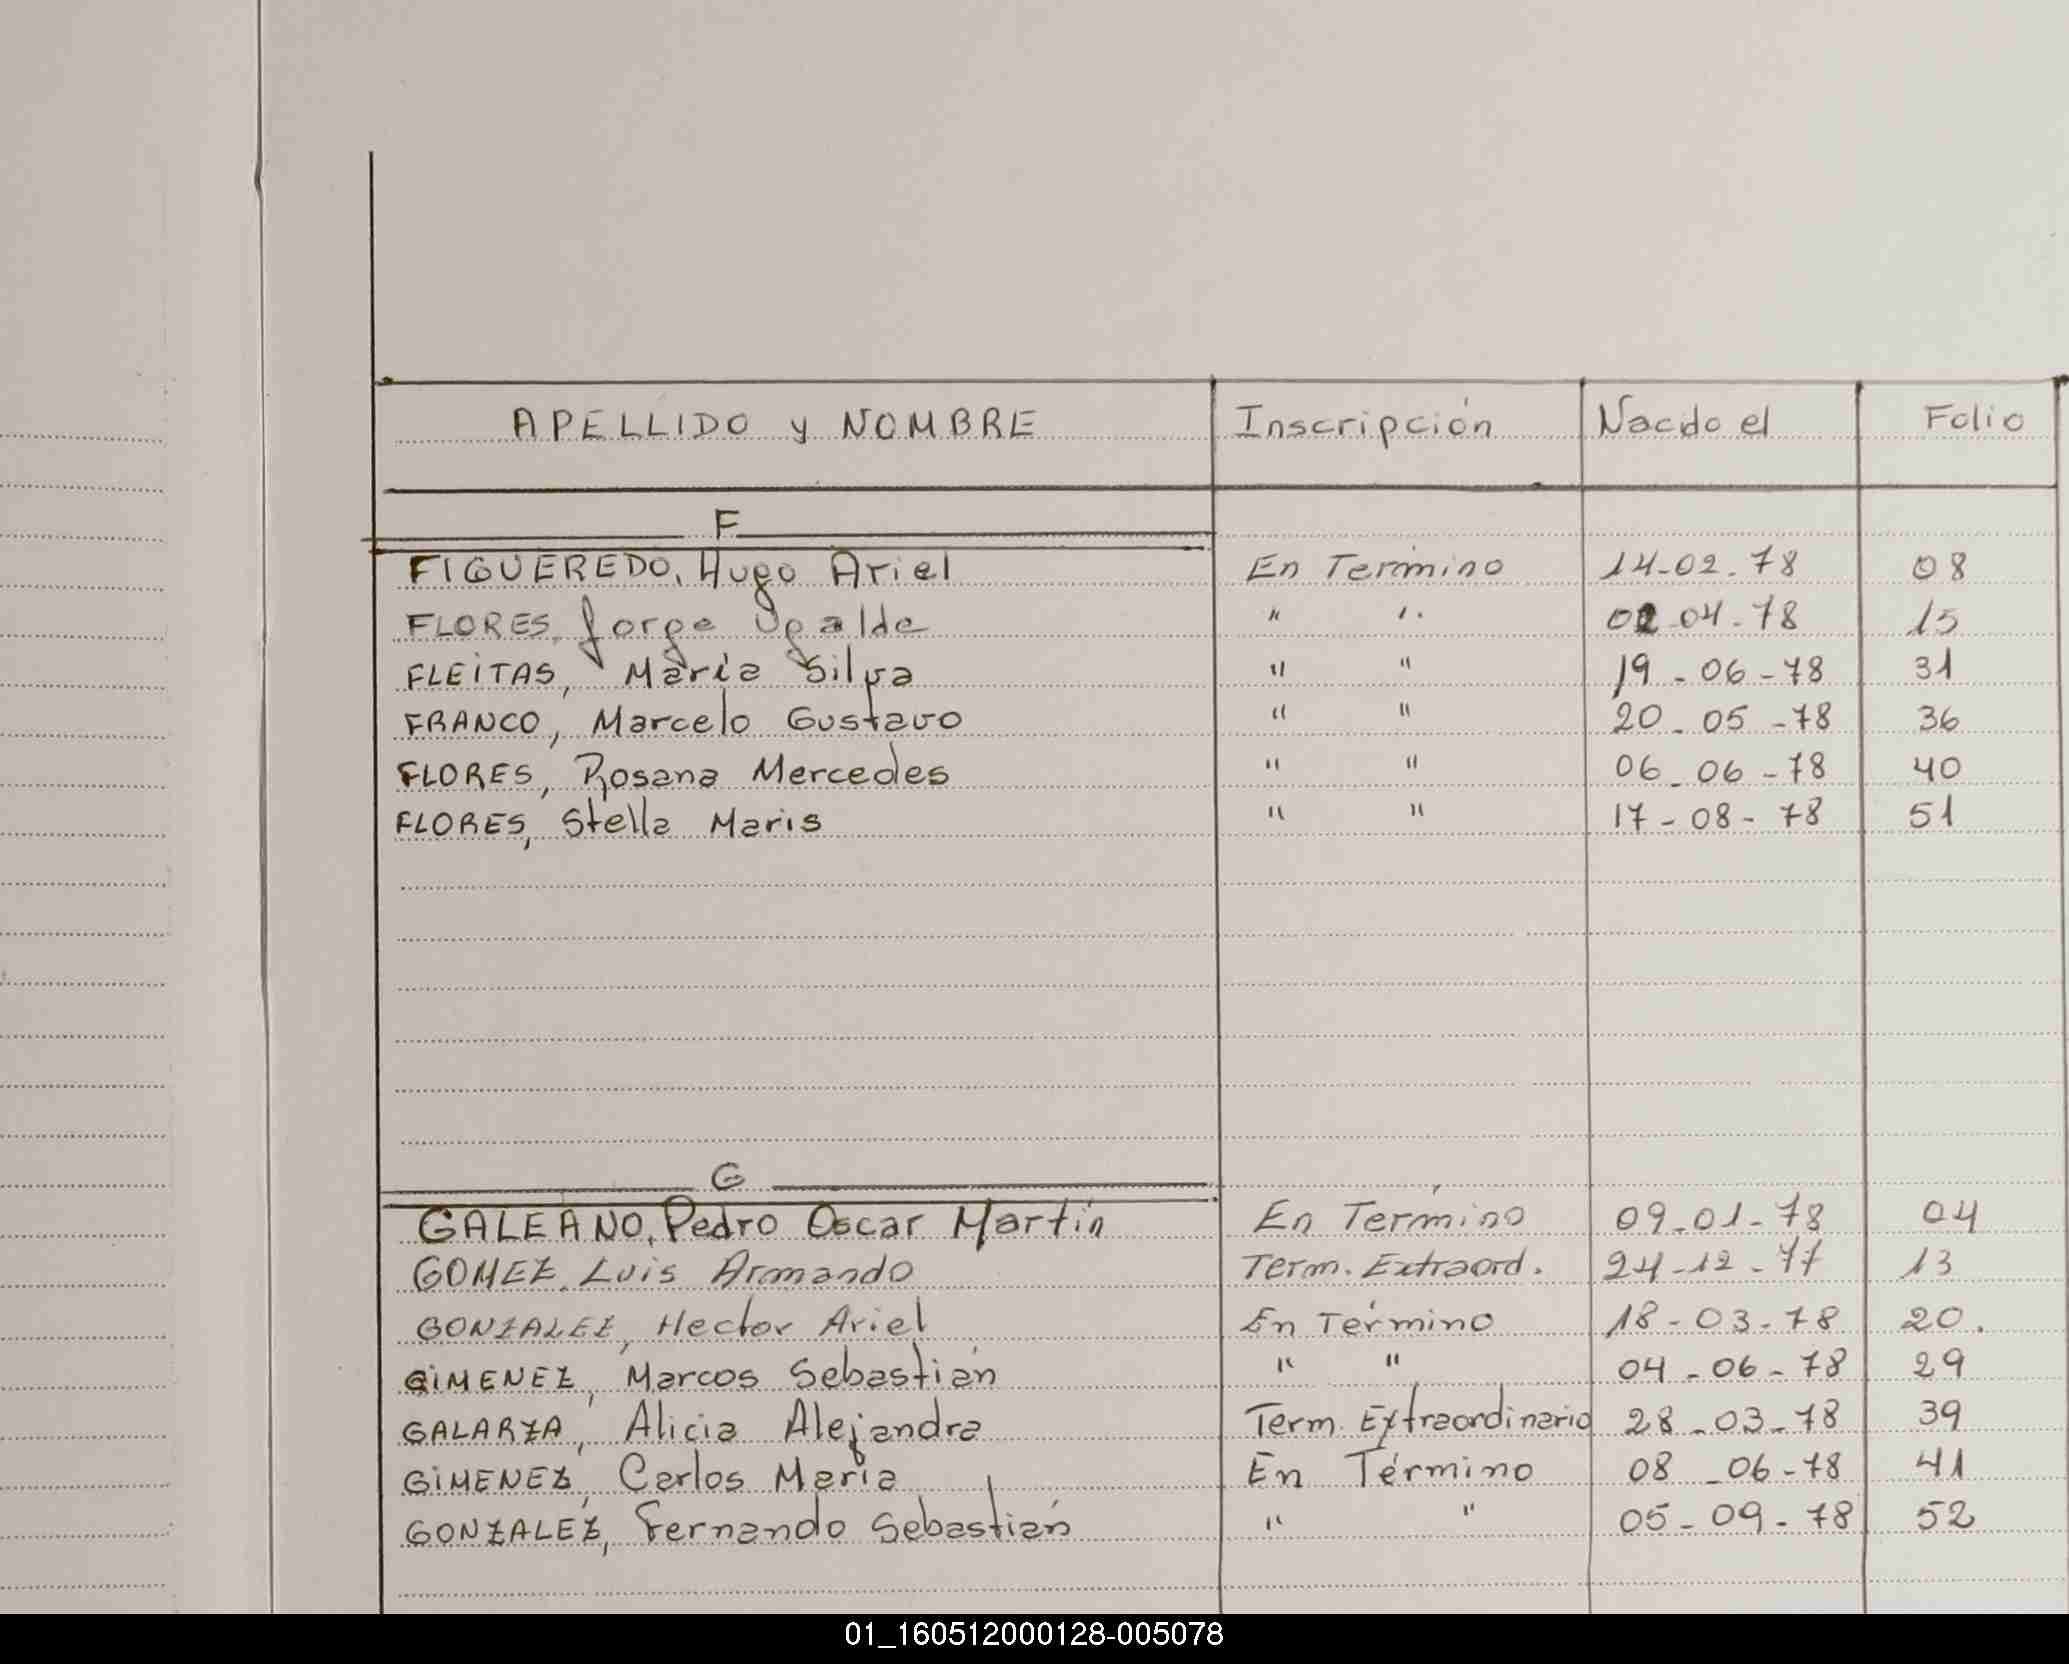 APELLIDO y NOMBRE Inscripción Nacido el Folio
F
FIGUEREDO, Hugo Ariel En Término 14-02-78 08
FLORES, Jorge Ugalde " " 02-04-78 15
FLEITAS, María Silva " " 19-06-78 31
FRANCO, Marcelo Gustavo " " 20-05-78 36
FLORES, Rosana Mercedes " " 06-06-78 40
FLORES, Stella Maris " " 17-08-78 51
G
GALEANO, Pedro Oscar Martín En Término 09-01-78 04
GOMEZ, Luis Armando Term. Extraord. 24-12-77 13
GONZALEZ, Hector Ariel En Término 18-03-78 20.
GIMENEZ, Marcos Sebastián " " 04-06-78 29
GALARZA, Alicia Alejandra Term. Extraordinario 28-03-78 39
GIMENEZ, Carlos María En Término 08-06-78 41
GONZALEZ, Fernando Sebastián " " 05-09-78 52
01_160512000128-005078